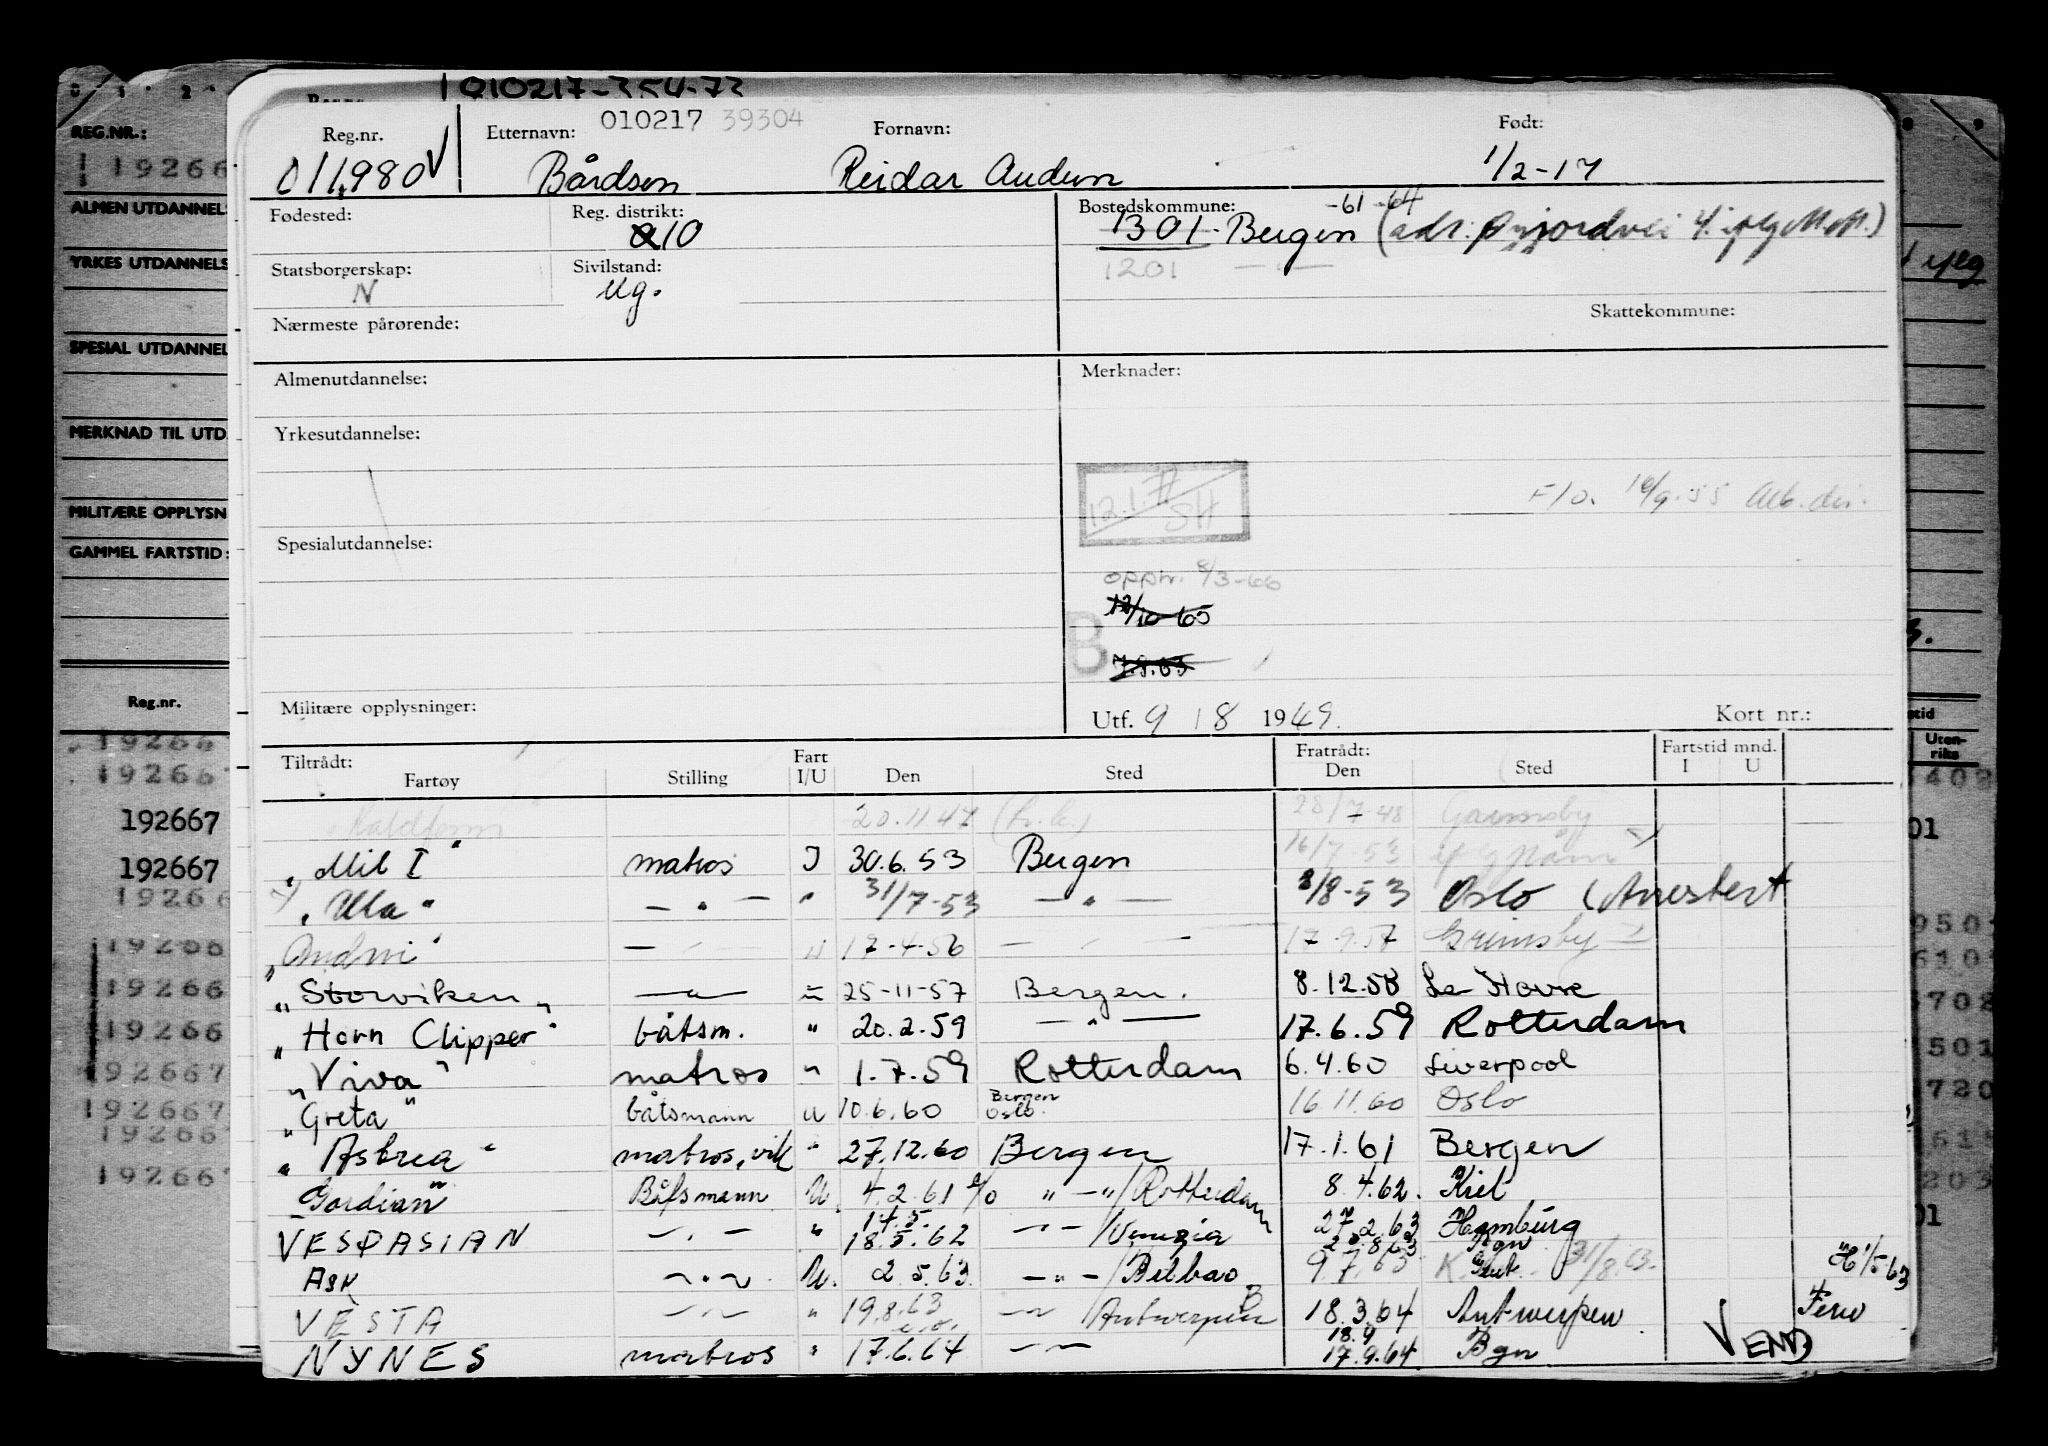 010217-354-73
Reg.nr. Etternavn: 010217 39304 Fornavn: Født:
011980 Bårdsen Reidar Audun 1/2-17
Fødested: Reg. distrikt: Bostedskommune: -61 -64
10 1301 Bergen (adr.: 4.
Statsborgerskap: Sivilstand: 1201
N ug.
Nærmeste pårørende: Skattekommune:
Almenutdannelse: Merknader:
Yrkesutdannelse:
12.1.71 SH F/O. 16/9-55 Arb.dir.
Spesialutdannelse:
opptr. 8/3-66
12/10 65
B
7.8.63
Militære opplysninger: Utf. 9 / 8 1949. Kort nr.:
Tiltrådt: Fartøy Stilling Fart I/U Den Sted Fratrådt: Den Sted Fartstid mnd. I U
20.11.47 28/7-48 Grimsby
"Mil I" matros I 30.6.53 Bergen 16/7-53
"Ula" — " — " 31/7-53 — " — 3/8-53 Oslo (Arrestert
"Andvi" — " — " 17-4-56 — " — 17.9.57 Grimsby
"Storviken" — " — " 25-11-57 Bergen. 8.12.58 Le Havre
"Horn Clipper" båtsm. " 20.2.59 — " — 17.6.59 Rotterdam
"Viva" matros " 1.7.59 Rotterdam 6.4.60 Liverpool
"Greta" båtsmann u 10.6.60 Bergen Oslo. 16.11.60 Oslo
"Astrea" matros, vik " 27.12.60 Bergen 17.1.61 Bergen
"Gordian" Båtsmann U. 4.2.61 " — "/Rotterdam 8.4.62. Kiel
VESPASIAN — " — " 17.5. 18.5.62 — " — /Venezia 27.2.63 Hamburg
ASK — " — U. 2.5.63 — " — /Bilbao 9.7.63 31/8.63. 1/5 63
VESTA — " — " 19.8.63 — " — /Antwerpen 18.3.64 Antwerpen Ferie
NYNES matros " 17.6.64 — " — 18.9 17.9.64 Bgn VEND
REG.NR.:
19266
ALMEN UTDANNEL
YRKES UTDANNELS
SPESIAL UTDANNEL
MERKNAD TIL UTD
MILITÆRE OPPLYSN
GAMMEL FARTSTID:
Reg.nr.
19266
192667
192667
192667
19266
19266
19266
19266
192667
192667
19266
19266
Uten-
riks